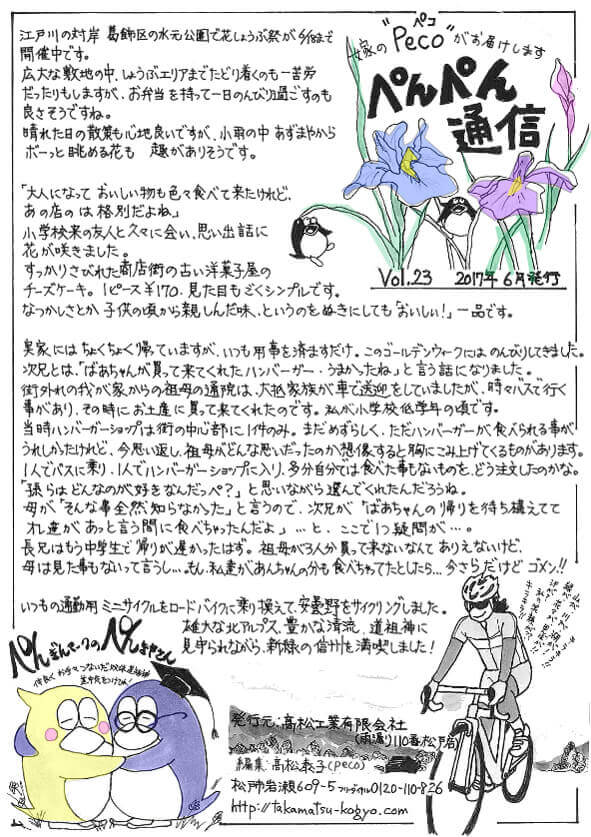 江戸川の対岸 葛飾区の水元公園で花しょうぶ祭が6/18まで
開催中です。
広大な敷地の中、しょうぶエリアまでたどり着くのも一苦労
だったりもしますが、お弁当を持って一日のんびり過ごすのも
良さそうですね。
晴れた日の散策も心地良いですが、小雨の中 あずまやから
ボーっと眺める花も 趣がありそうです。
女家の "Peco" がお届けします
ペコ
ぺんぺん
通信
Vol.23 2017年6月発行
「大人になって おいしい物も色々食べて来たけれど、
あの店のは格別だよね」
小学校来の友人と久々に会い、思い出話に
花が咲きました。
すっかりさびれた商店街の古い洋菓子屋の
チーズケーキ。1ピース¥170.見た目もごくシンプルです。
なつかしさとか 子供の頃から親しんだ味、というのをぬきにしても「おいしい!」一品です。
実家にはちょくちょく帰っていますが、いつも用事を済ますだけ。このゴールデンウィークにはのんびりしてきました。
次兄とは、「ばあちゃんが買って来てくれたハンバーガー・うまかったね」と言う話になりました。
街外れの我が家からの祖母の通院は、大抵家族が車で送迎をしていましたが、時々バスで行く
事があり、その時にお土産に買って来てくれたのです。私が小学校低学年の頃です。
当時ハンバーガーショップは街の中心部に1件のみ。まだめずらしく、ただハンバーガーが食べられる事が
うれしかったけれど、今思い返し、祖母がどんな思いだったのか想像すると胸にこみ上げてくるものがあります。
1人でバスに乗り、1人でハンバーガーショップに入り、多分自分では食べた事もないものを、どう注文したのかな。
「孫らはどんなのが好きなんだっぺ?」と思いながら選んでくれたんだろうね。
母が「そんな事全然知らなかった」と言うので、次兄が「ばあちゃんの帰りを待ち構えてて
オレ達が あっと言う間に食べちゃったんだよ」…と、ここで1つ疑問が…。
長兄はもう中学生で帰りが遅かったはず。祖母が3人分買って来ないなんてありえないけど、
母は見た事もないって言うし…。もし私達があんちゃんの分も食べちゃってたとしたら…今さらだけどゴメン!!
いつもの通勤用ミニサイクルをロードバイクに乗り換えて、安曇野をサイクリングしました。
雄大な北アルプス、豊かな清流、道祖神に
見守られながら、新緑の信州を満喫しました!
発行元:高松工業有限会社
(雨漏り110番松戸店)
編集:高松泰子(peco)
松戸市岩瀬609-5 フリーダイヤル0120-110-826
http://takamatsu-kogyo.com